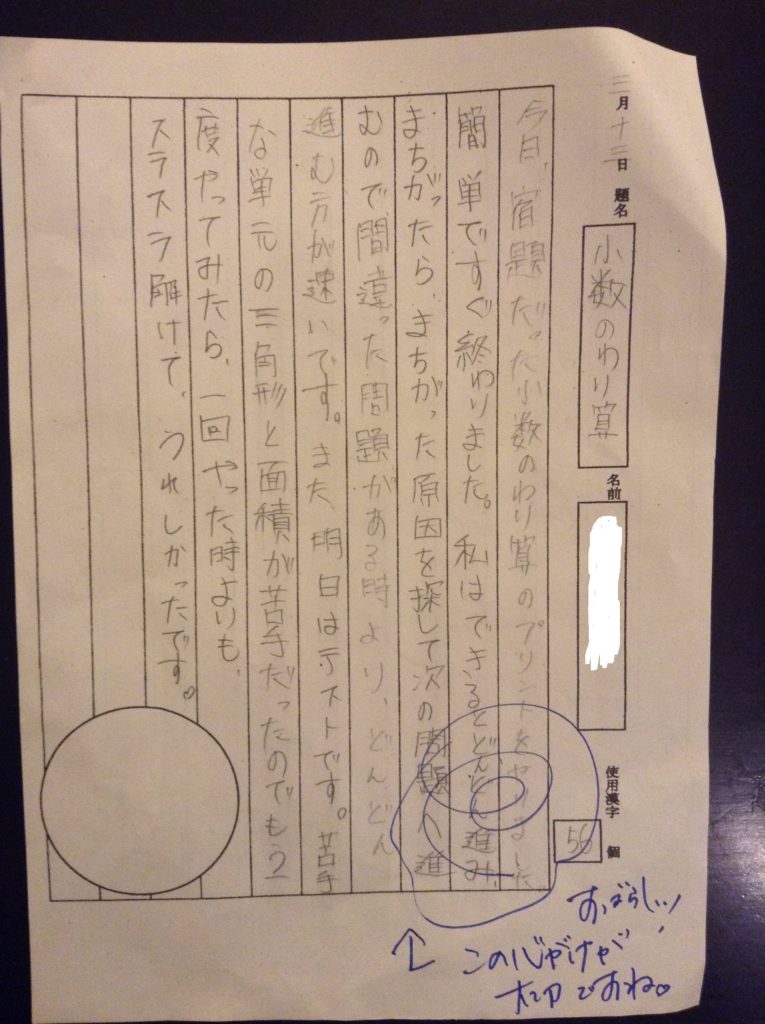 三月十三日 題名 小数のわり算 名前 使用漢字 56 個
今日、宿題だった小数のわり算のプリントをやりました。
簡単ですぐ終わりました。私はできるとどんどん進み、
まちがったら、まちがった原因を探して次の問題へ進
むので間違った問題がある時より、どんどん
進む方が速いです。また、明日はテストです。苦手
な単元の三角形と面積が苦手だったのでもう一
度やってみたら、一回やった時よりも、
スラスラ解けて、うれしかったです。
すばらしい!
↑この心がけが
大切ですね。